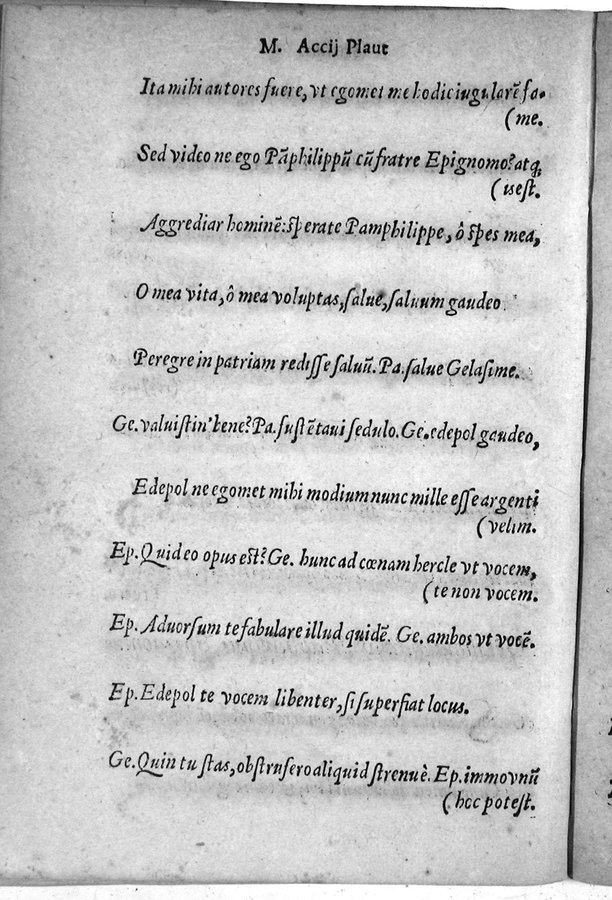 M. Accij Plaut
Ita mihi autores fuere, vt egomet me hodie iugularē fa-
(me.
Sed video ne ego Pāphilippū cū fratre Epignomo? atq;
(is est.
Aggrediar hominē: sperate Pamphilippe, ô spes mea,
O mea vita, ô mea voluptas, salue, saluum gaudeo
Peregre in patriam redisse saluū. Pa. salue Gelasime.
Ge. valuistin' bene? Pa. sustētaui sedulo. Ge. edepol gaudeo,
Edepol ne egomet mihi modium nunc mille esse argenti
(velim.
Ep. Quid eo opus est? Ge. hunc ad cœnam hercle vt vocem,
(te non vocem.
Ep. Aduorsum te fabulare illud quidē. Ge. ambos vt vocē.
Ep. Edepol te vocem libenter, si superfiat locus.
Ge. Quin tu stas, obstrusero aliquid strenuè. Ep. immo vnū
(hoc potest.